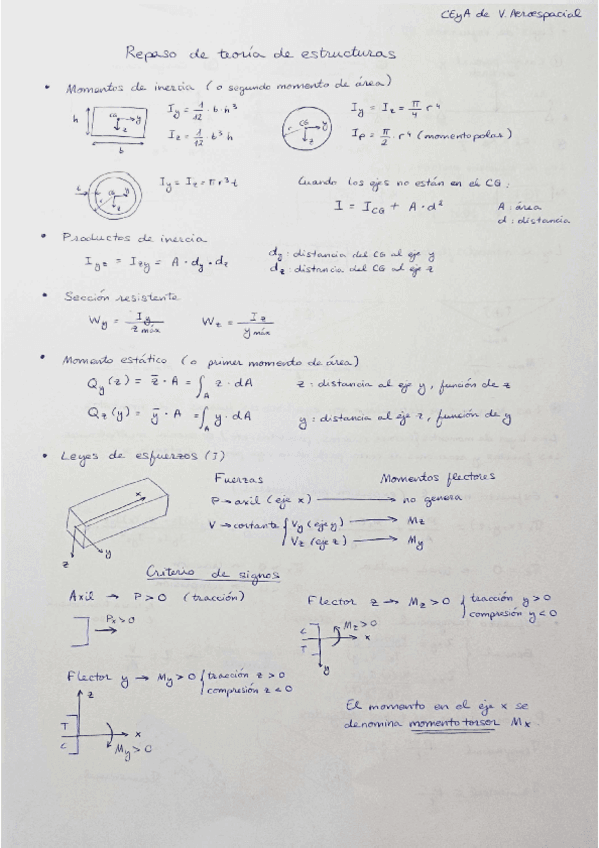 CEyA de V. Aeroespacial
Repaso de teoría de estructuras
• Momentos de inercia (o segundo momento de área)
h b CG y z
I_y = 1/12 · b · h³
I_z = 1/12 · b³ h
r CG y z
I_y = I_z = π/4 r⁴
I_p = π/2 · r⁴ (momento polar)
t CG y z
I_y = I_z = π r³ t
Cuando los ejes no están en el CG:
I = I_CG + A · d²
A: área
d: distancia
• Productos de inercia
I_yz = I_zy = A · d_y · d_z
d_y: distancia del CG al eje y
d_z: distancia del CG al eje z
• Sección resistente
W_y = I_y / z máx
W_z = I_z / y máx
• Momento estático (o primer momento de área)
Q_y(z) = z̄ · A = ∫_A z · dA
z: distancia al eje y, función de z
Q_z(y) = ȳ · A = ∫_A y · dA
y: distancia al eje z, función de y
• Leyes de esfuerzos (I)
x y z
Fuerzas
Momentos flectores
P → axil (eje x) → no genera
V → cortante { V_y (eje y) → M_z
V_z (eje z) → M_y
Criterio de signos
Axil → P > 0 (tracción)
P_x > 0
Flector z → M_z > 0 { tracción y > 0
compresión y < 0
C T M_z > 0 x y
Flector y → M_y > 0 { tracción z > 0
compresión z < 0
z T C x M_y > 0
El momento en el eje x se
denomina momento torsor M_x